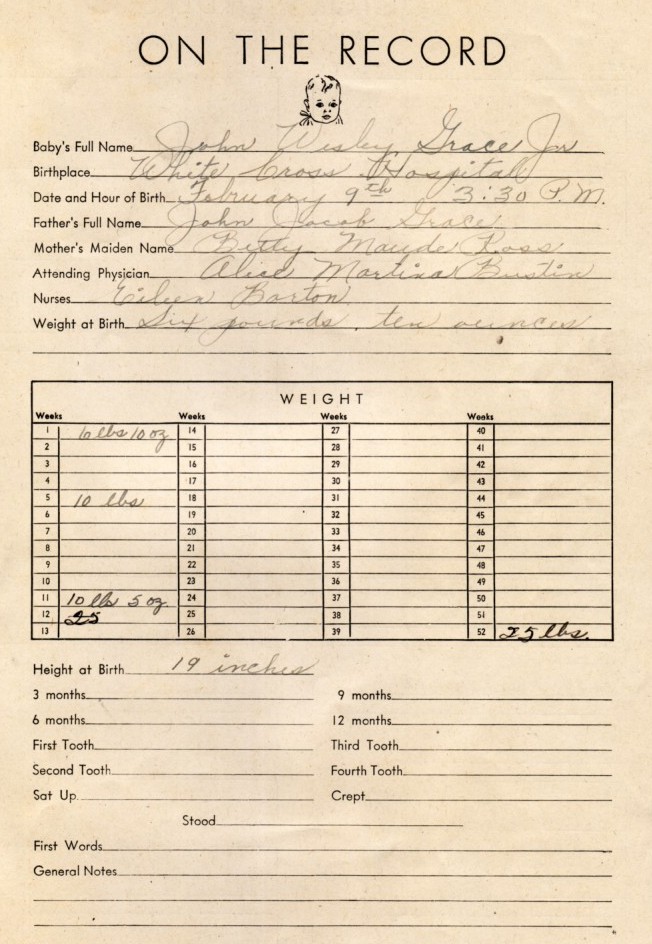 ON THE RECORD
Baby's Full Name John Wesley Grace Jr
Birthplace White Cross Hospital
Date and Hour of Birth February 9th 3:30 P.M.
Father's Full Name John Jacob Grace
Mother's Maiden Name Betty Maude Ross
Attending Physician Alice Martina Bustin
Nurses Eileen Barton
Weight at Birth Six pounds, ten ounces
WEIGHT
Weeks Weeks Weeks Weeks
1 6 lbs 10 oz 14 27 40
2 15 28 41
3 16 29 42
4 17 30 43
5 10 lbs 18 31 44
6 19 32 45
7 20 33 46
8 21 34 47
9 22 35 48
10 23 36 49
11 10 lb 5 oz. 24 37 50
12 25 25 38 51
13 26 39 52 25 lbs.
Height at Birth 19 inches
3 months 9 months
6 months 12 months
First Tooth Third Tooth
Second Tooth Fourth Tooth
Sat Up Crept
Stood
First Words
General Notes